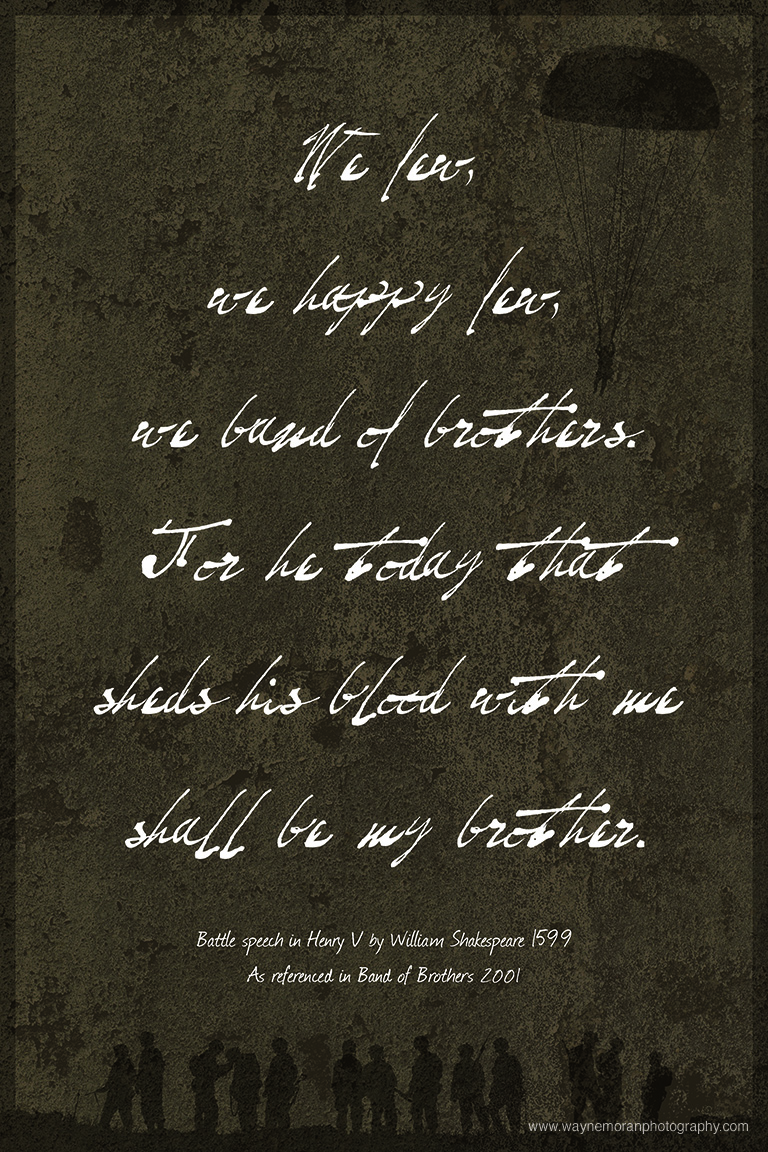 We few,
we happy few,
we band of brothers.
For he today that
sheds his blood with me
shall be my brother.
Battle speech in Henry V by William Shakespeare 1599
As referenced in Band of Brothers 2001
www.waynemoranphotography.com